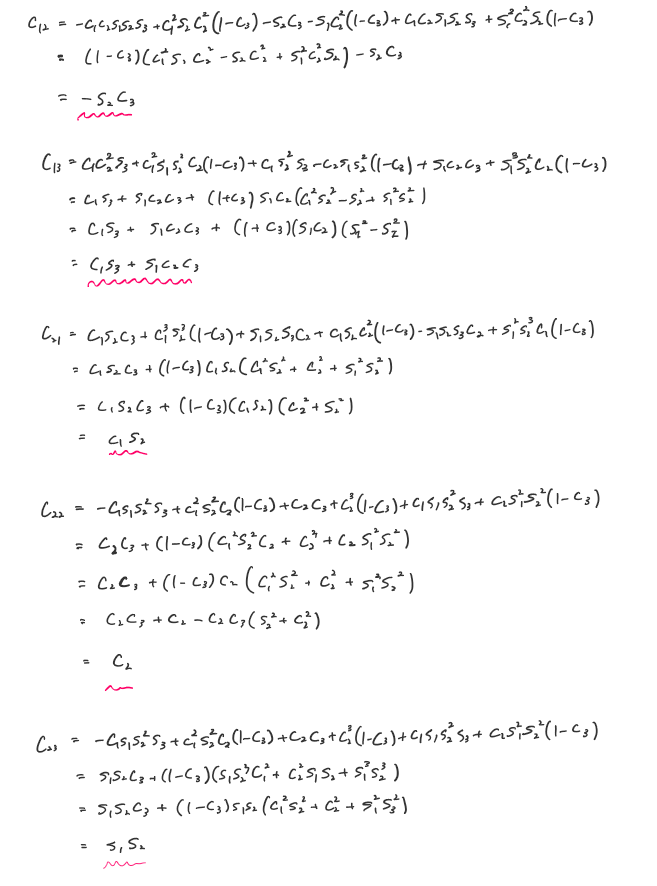 C₁₂ = -C₁C₂S₁S₂S₃ + C₁²S₂C₂²(1-C₃) - S₂C₃ - S₂C₂²(1-C₃) + C₁C₂S₁S₂S₃ + S₁²C₂²S₂(1-C₃)
= (1-C₃)(C₁²S₂C₂² - S₂C₂² + S₁²C₂²S₂) - S₂C₃
= -S₂C₃
C₁₃ = C₁C₂²S₃ + C₁²S₁S₂²C₂(1-C₃) + C₁S₂²S₃ - C₂S₁S₂²(1-C₃) + S₁C₂C₃ + S₁³S₂²C₂(1-C₃)
= C₁S₃ + S₁C₂C₃ + (1+C₃)S₁C₂(C₁²S₂² - S₂² + S₁²S₂²)
= C₁S₃ + S₁C₂C₃ + (1+C₃)(S₁C₂)(S₂² - S₂²)
= C₁S₃ + S₁C₂C₃
C₂₁ = C₁S₂C₃ + C₁³S₂³(1-C₃) + S₁S₂S₃C₂ + C₁S₂C₂²(1-C₃) - S₁S₂S₃C₂ + S₁²S₂³C₁(1-C₃)
= C₁S₂C₃ + (1-C₃)C₁S₂(C₁²S₂² + C₂² + S₁²S₂²)
= C₁S₂C₃ + (1-C₃)(C₁S₂)(C₂² + S₂²)
= C₁S₂
C₂₂ = -C₁S₁S₂²S₃ + C₁²S₂²C₂(1-C₃) + C₂C₃ + C₂³(1-C₃) + C₁S₁S₂²S₃ + C₂S₁²S₂²(1-C₃)
= C₂C₃ + (1-C₃)(C₁²S₂²C₂ + C₂³ + C₂S₁²S₂²)
= C₂C₃ + (1-C₃)C₂(C₁²S₂² + C₂² + S₁²S₂²)
= C₂C₃ + C₂ - C₂C₃(S₂² + C₂²)
= C₂
C₂₃ = -C₁S₁S₂²S₃ + C₁²S₂²C₂(1-C₃) + C₂C₃ + C₂³(1-C₃) + C₁S₁S₂²S₃ + C₂S₁²S₂²(1-C₃)
= S₁S₂C₃ + (1-C₃)(S₁S₂³C₁² + C₂²S₁S₂ + S₁³S₂³)
= S₁S₂C₃ + (1-C₃)S₁S₂(C₁²S₂² + C₂² + S₁²S₂²)
= S₁S₂